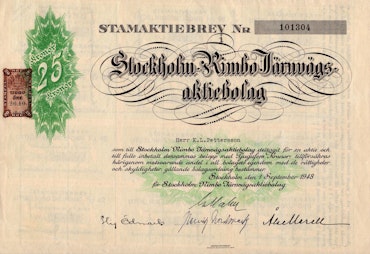 STAMAKTIEBREV Nr 101304
Kronor 25 Kronor
Stockholm-Rimbo Järnvägs-
aktiebolag
Herr K.L.Pettersson
som till Stockholm Rimbo Järnvägsaktiebolag deltagit för en aktie och
till fullo inbetalt densammas belopp med Tjugofem Kronor tillförsäkras
härigenom motsvarande andel i all bolagets egendom med de rättigheter
och skyldigheter gällande bolagsordning bestämmer.
Stockholm den 1 September 1943
för Stockholm-Rimbo Järnvägsaktiebolag